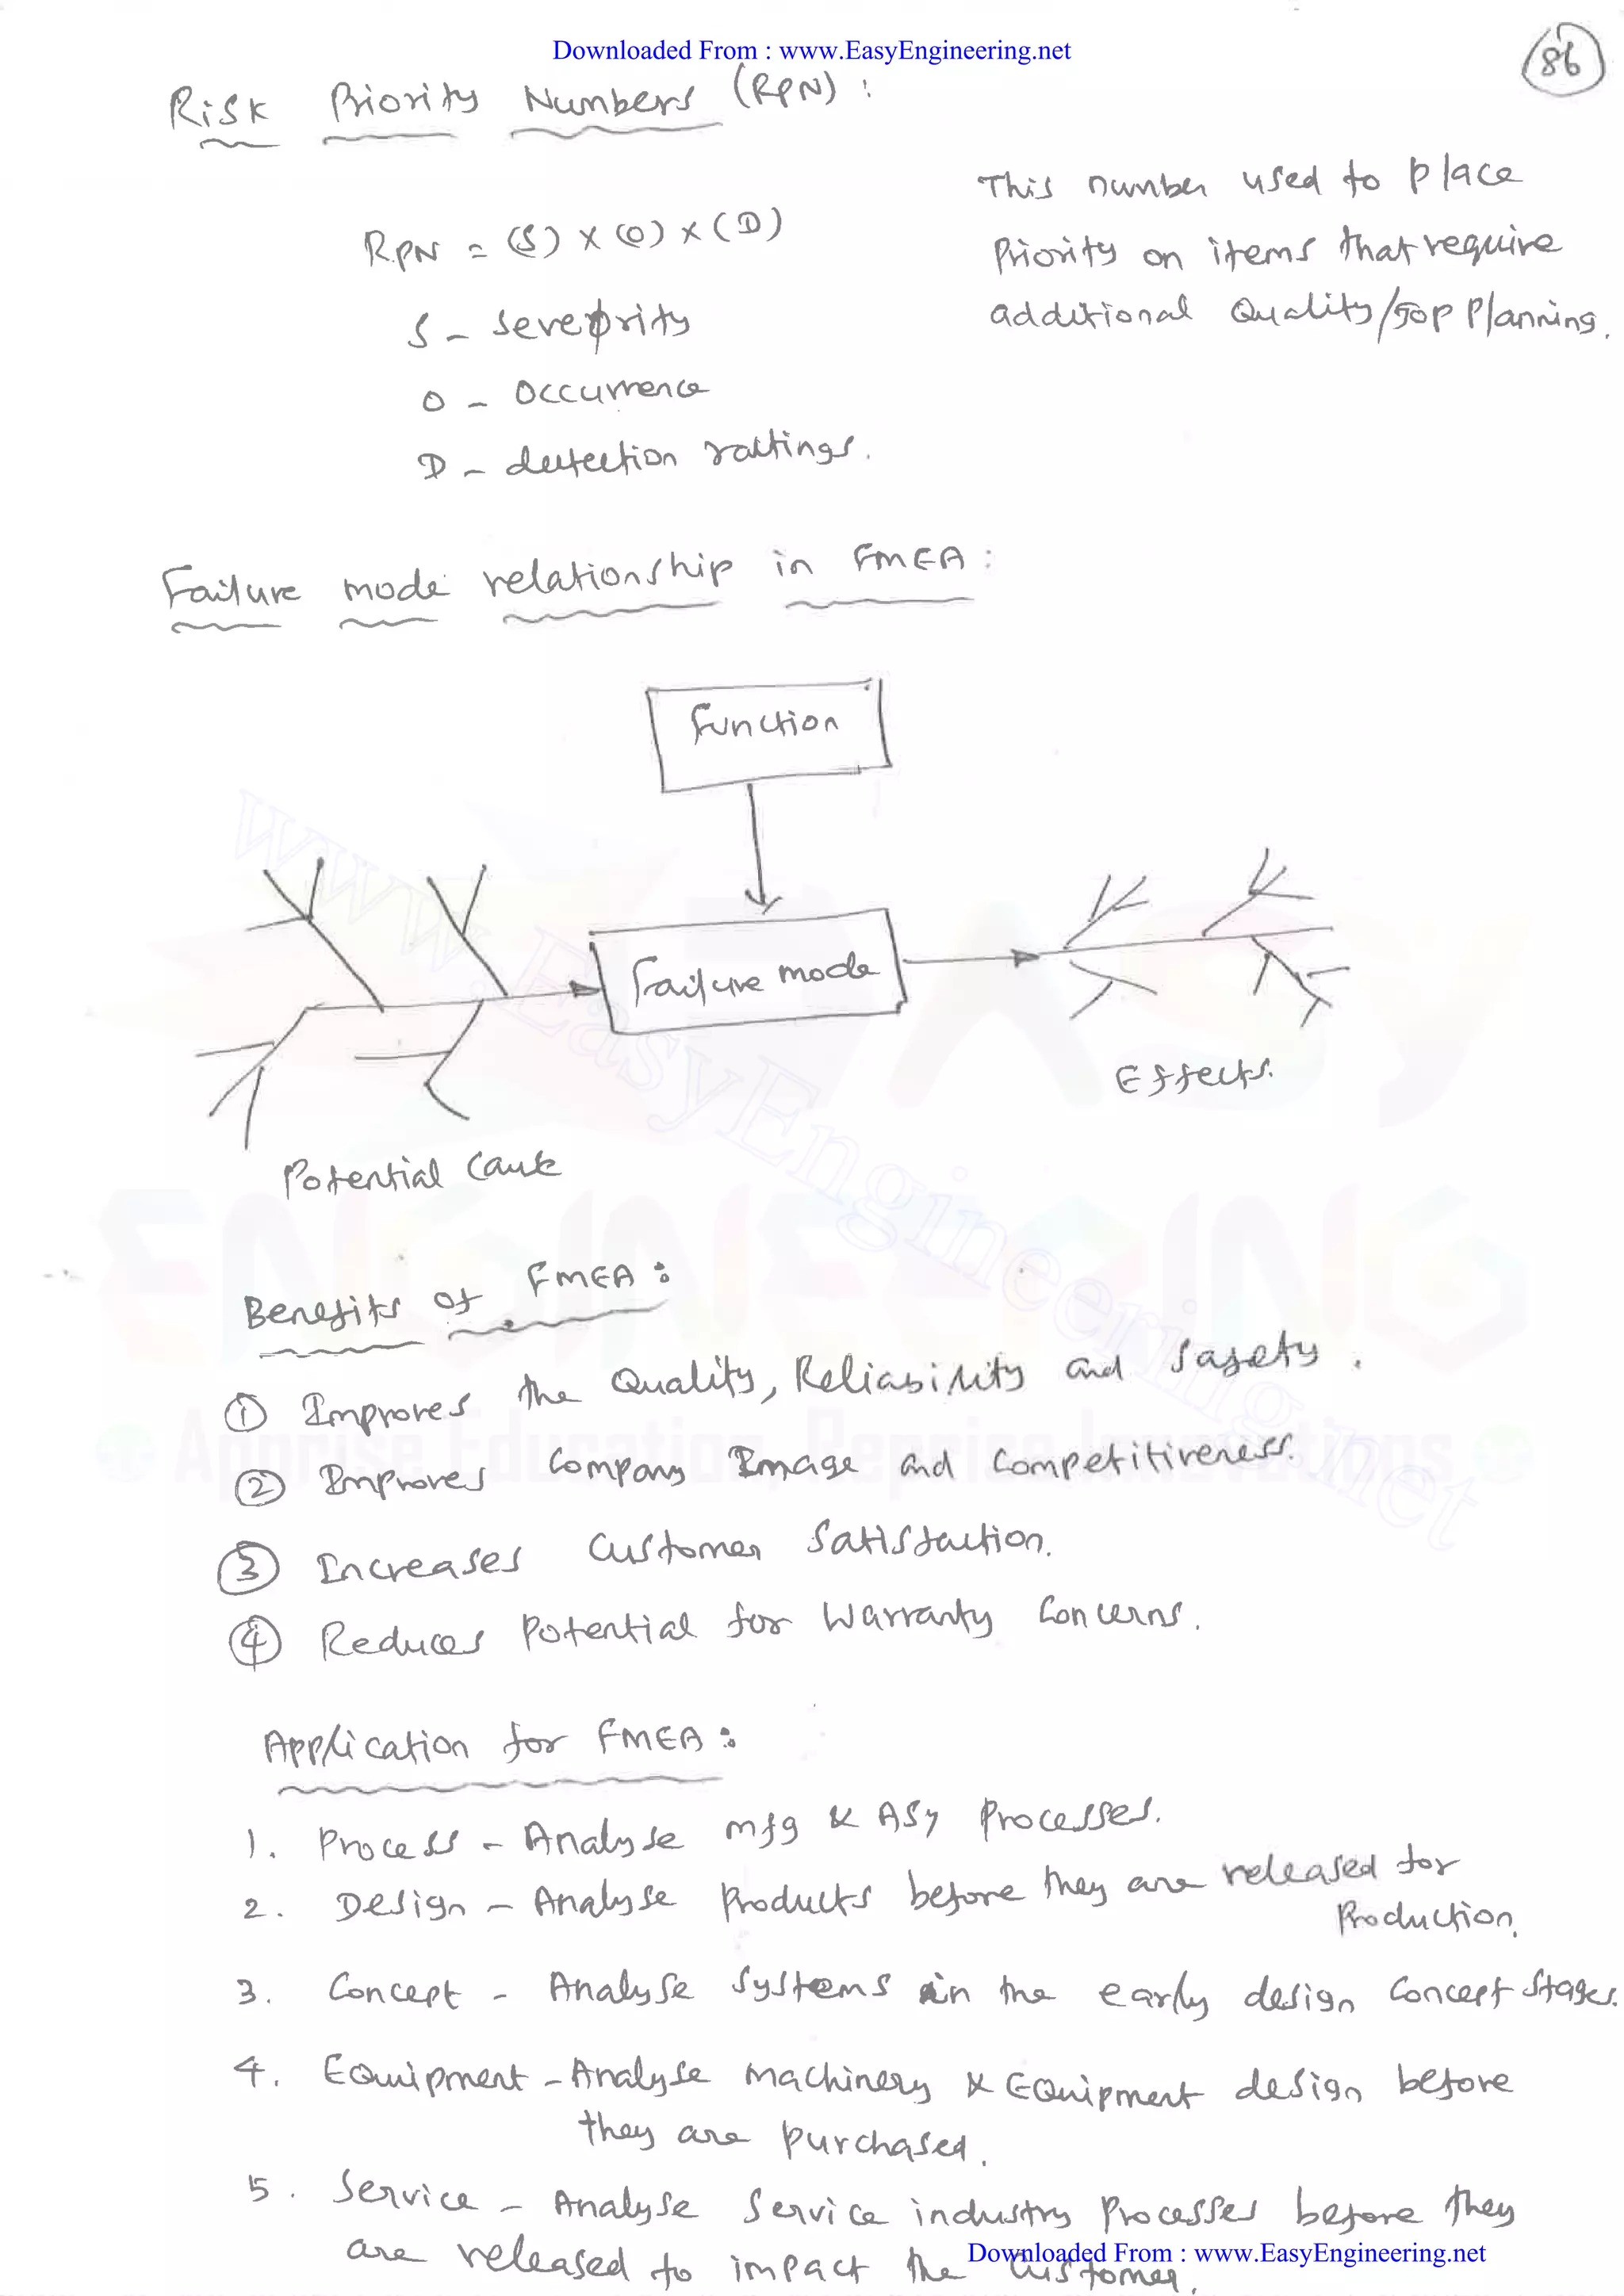 Downloaded From : www.EasyEngineering.net
86
Risk Priority Numbers (RPN) :
RPN = (S) X (O) X (D)
S - Severity
O - Occurrence
D - detection rattings.
This number used to place
Priority on items that require
additional Quality / Top Planning.
Failure mode relationship in FMEA :
Function
Failure mode
Effects.
Potential Cause
Benefits of FMEA :
① Improves the Quality, Reliability and Safety.
② Improves Company Image and Competitiveness.
③ Increases Customer Satisfaction.
④ Reduces Potential for Warranty Concerns.
Application for FMEA :
1. Process - Analyse mfg & ASy Processes.
2. Design - Analyse Products before they are released for
Production.
3. Concept - Analyse Systems in the early design Concept Stages.
4. Equipment - Analyse Machinery & Equipment design before
they are purchased.
5. Service - Analyse Service industry Processes before they
are released to impact the Customer.
Downloaded From : www.EasyEngineering.net
www.EasyEngineering.net
EASY
ENGINEERING
Apprise Education, Reprise Innovations